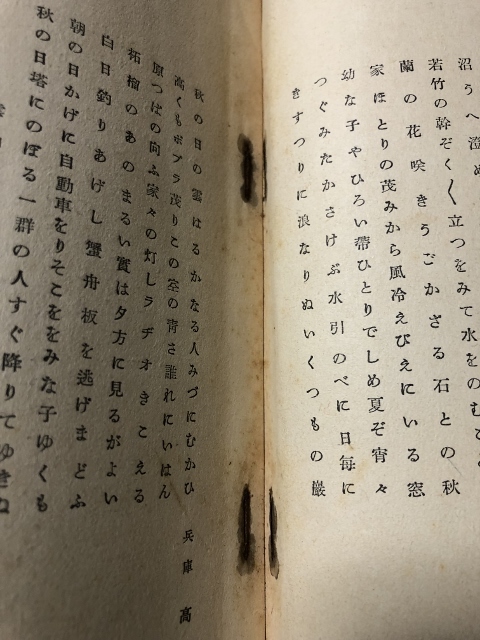 沼うへ澄
若竹の幹ぞく〱立つをみて水をのむひ
蘭の花咲きうごかざる石との秋
家ほとりの茂みから風冷えびえにいる窓
幼な子やひろい帶ひとりでしめ夏ぞ宵々
つぐみたかさけぶ水引のべに日每に
きすつりに浪なりぬいくつもの巌
秋の日の雲はるかなる人みづにむかひ
兵庫 高
高くもポプラ茂りこの空の青さ誰れにいはん
原つぱの向ふ家々の灯しラヂオきこえる
柘榴のあのまるい實は夕方に見るがよい
白日釣りあげし蟹舟板を逃げまどふ
朝の日かげに自動車をりそこををみな子ゆくも
秋の日塔にのぼる一群の人すぐ降りてゆきぬ